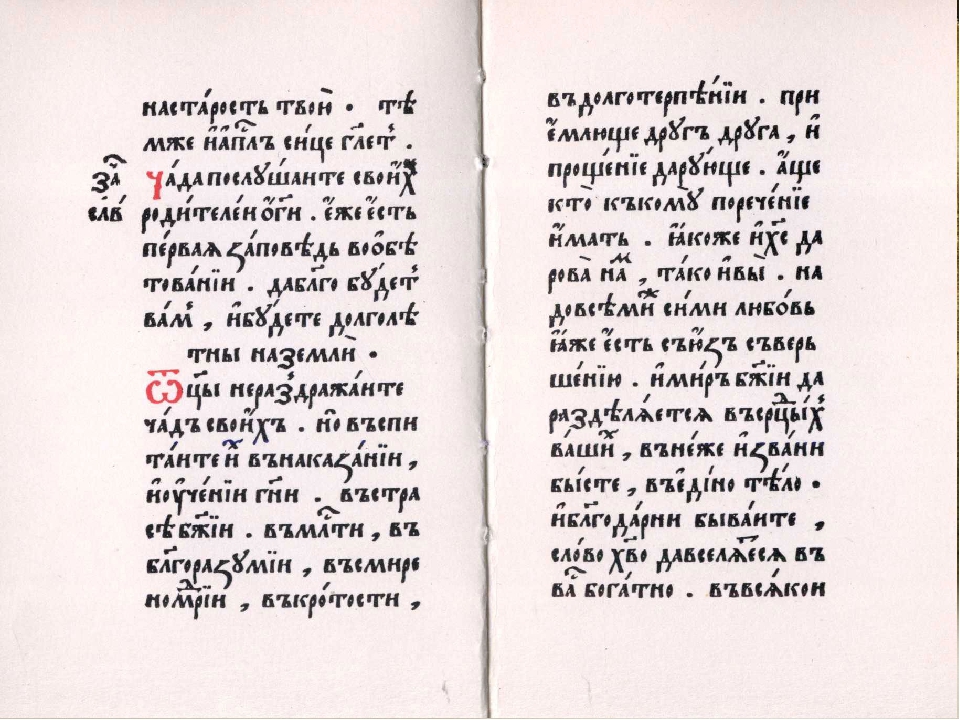 наста́рость твою̀ . тѣ́
мже и҆а҆пⷭ҇лъ си́це гл҃етъ .
за̑
ча́да послꙋ́шаите свои́хъ
сл҃в
роди́телеи ѻ҆ г҃и . є҆́же є҆́сть
пе́рвая за́повѣдь воѻ҆бѣ
това́нїи . дабл҃го бꙋ́детъ
ва́мъ , и҆бꙋ́дете долголѣ́
тны наземлѝ .
Ѿц҃ы нераздража́ите
ча́дъ свои́хъ . но̀ въспи
та́ите и҆̀ вънаказа́нїи ,
и҆оу҆че́нїи гн҃и . въстра
сѣ бж҃їи . въмлⷭ҇ти , въ
бл҃горазꙋмїи , въсмире
номꙋ́дрїи , въкро́тости ,
въдолготерпѣ́нїи . при
є҆́млюще дрꙋ́гъ дрꙋ́га , и҆
проще́нїе дарꙋ́юще . а҆́ще
кто̀ къкомꙋ̀ порече́нїе
и҆́мать . ꙗ҆́коже и҆хⷭ҇ да
рова̀ на́мъ , та́ко и҆вы̀ . на
довсѣ́ми си́ми любо́вь
ꙗ҆́же є҆́сть съю́зъ съверь
ше́нїю . и҆ми́ръ бж҃їи да
раздѣлѧ́етсѧ въсрⷣцы́хъ
ва́шихъ , въне́же и҆зва́ни
бы́сте , въє҆ді́но тѣ́ло .
и҆бл҃года́рни быва́ите ,
сло́во хв҃о давселѧ́етсѧ въ
ва́съ бога́тно . въвсѧ́кои